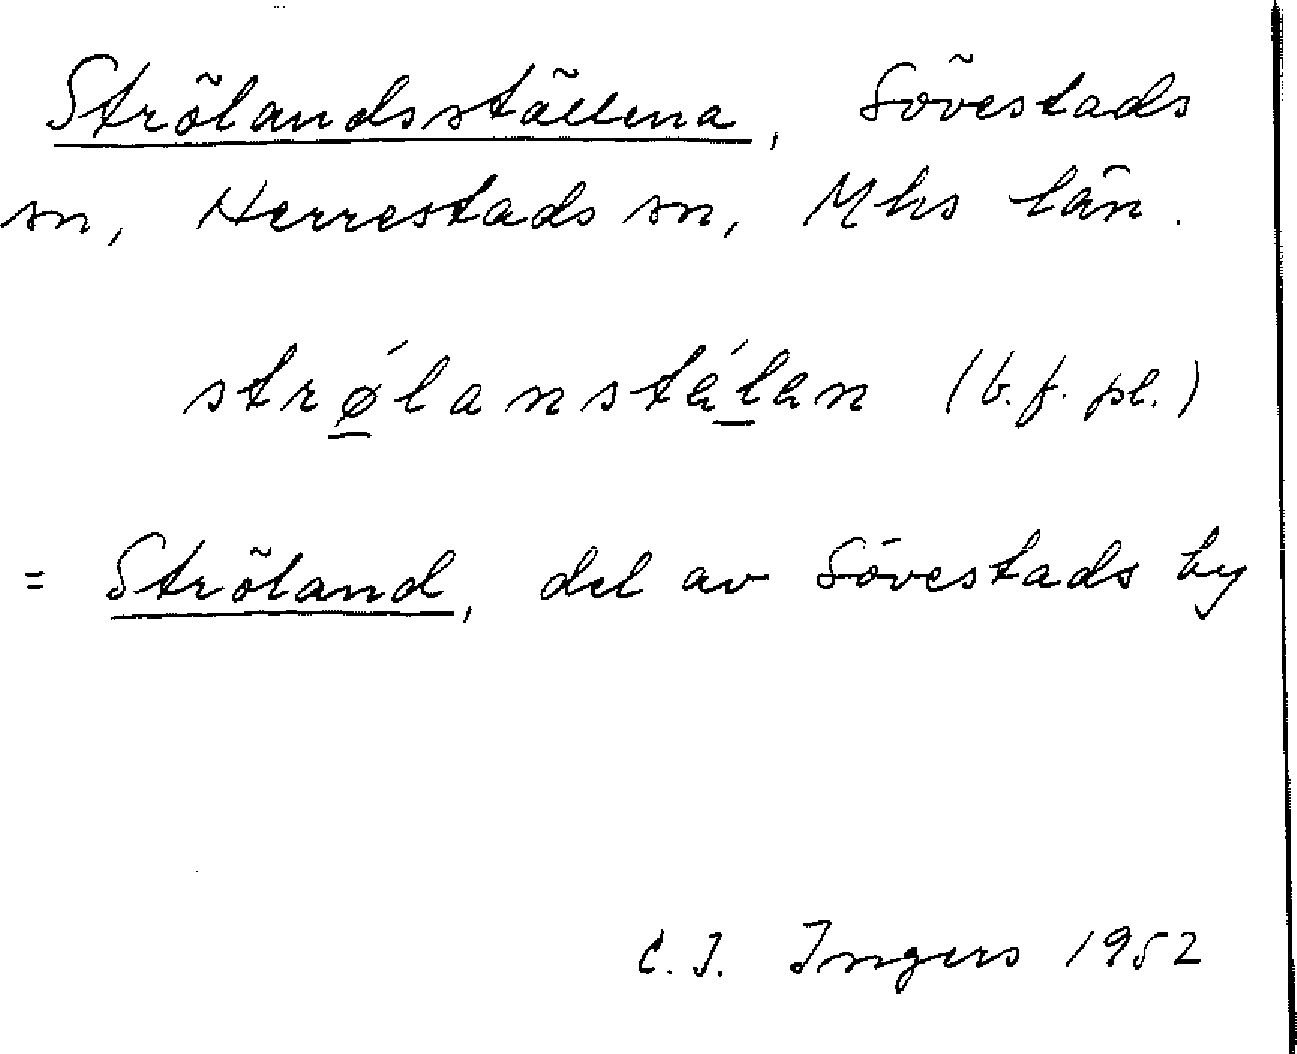 Strölandsställena, Sövestads
sn, Herrestads sn, Mhs län.
strǿ̲lanstá̲̲lan (b.f. pl.)
= Ströland, del av Sövestads by
C.I. Ingers 1952